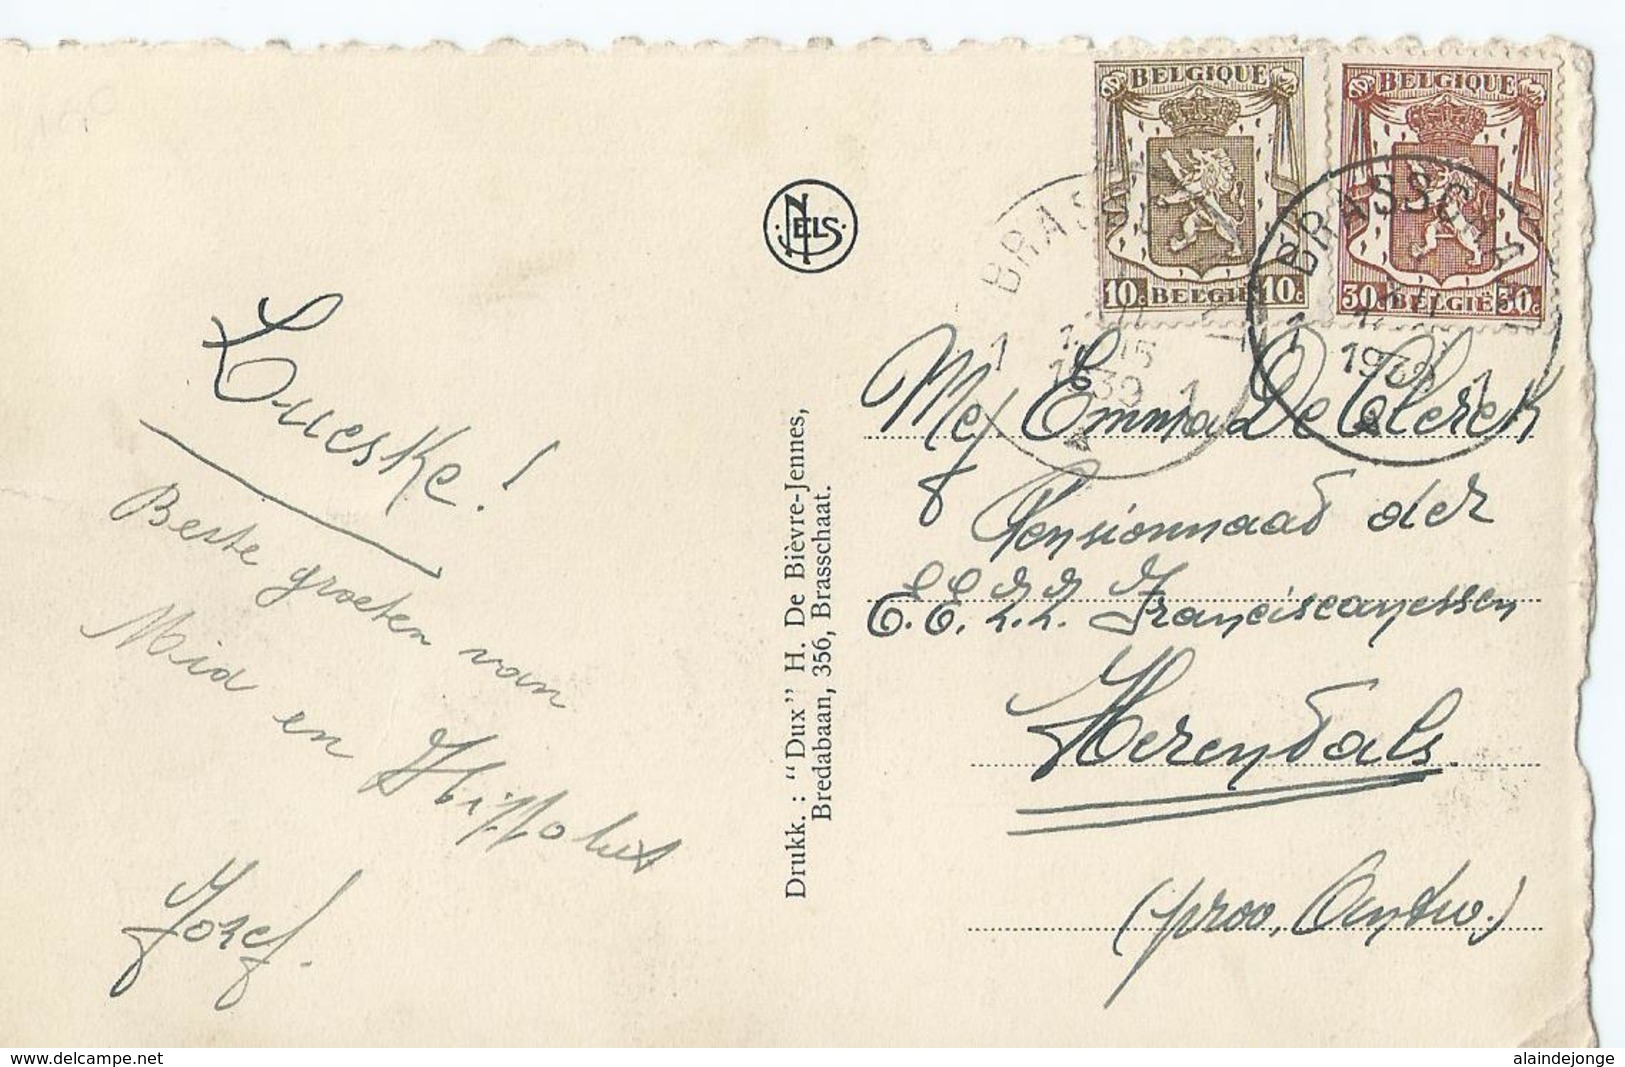 Lueske!
Beste groeten van
Mia en Hippoliet
Jozef.
NELS
Drukk.: "Dux" H. De Bièvre-Jennes,
Bredabaan, 356, Brasschaat.
BELGIQUE
10c BELGIË 10c
BELGIQUE
30c BELGIË 30c
BRASSCHAAT
1 1
1939
Mej. Emma De Clerck
Pensionnaat der
E.E. Z.Z. Franciscanessen
Herendals.
(prov. Antw.)
www.delcampe.net
alaindejonge